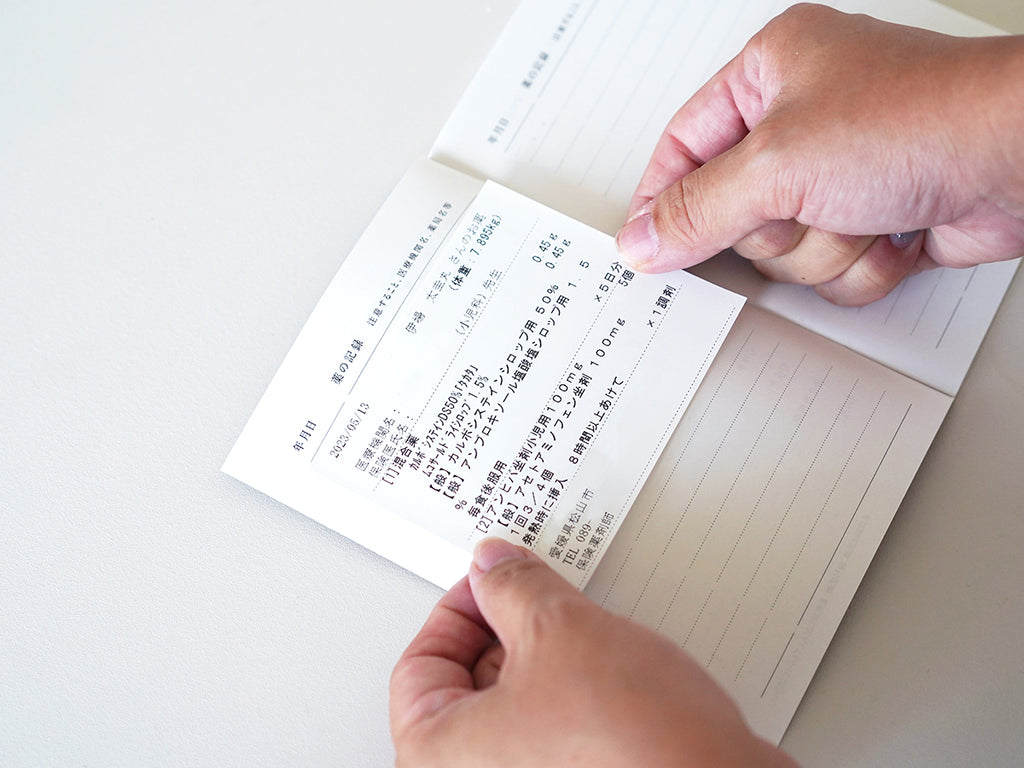 年月日
薬の記録
注意すること、医療機関名、薬局名等
2023/05/13
伊場 太圭丸 さんのお薬
(体重：7.895kg)
医療機関名：
保険医氏名： (小児科) 先生
[1]混合薬
カルボシステインDS50%「タカタ」 0.45g
ムコサールドライシロップ1.5% 0.45g
【般】カルボシステインシロップ用50%
【般】アンブロキソール塩酸塩シロップ用1.5
%
毎食後服用 ×5日分
[2]アンヒバ坐剤小児用100mg 5個
【般】アセトアミノフェン坐剤 100mg
1回3/4個
発熱時に挿入 8時間以上あけて ×1調剤
愛媛県松山市
TEL 089-
保険薬剤師
年月日
薬の記録